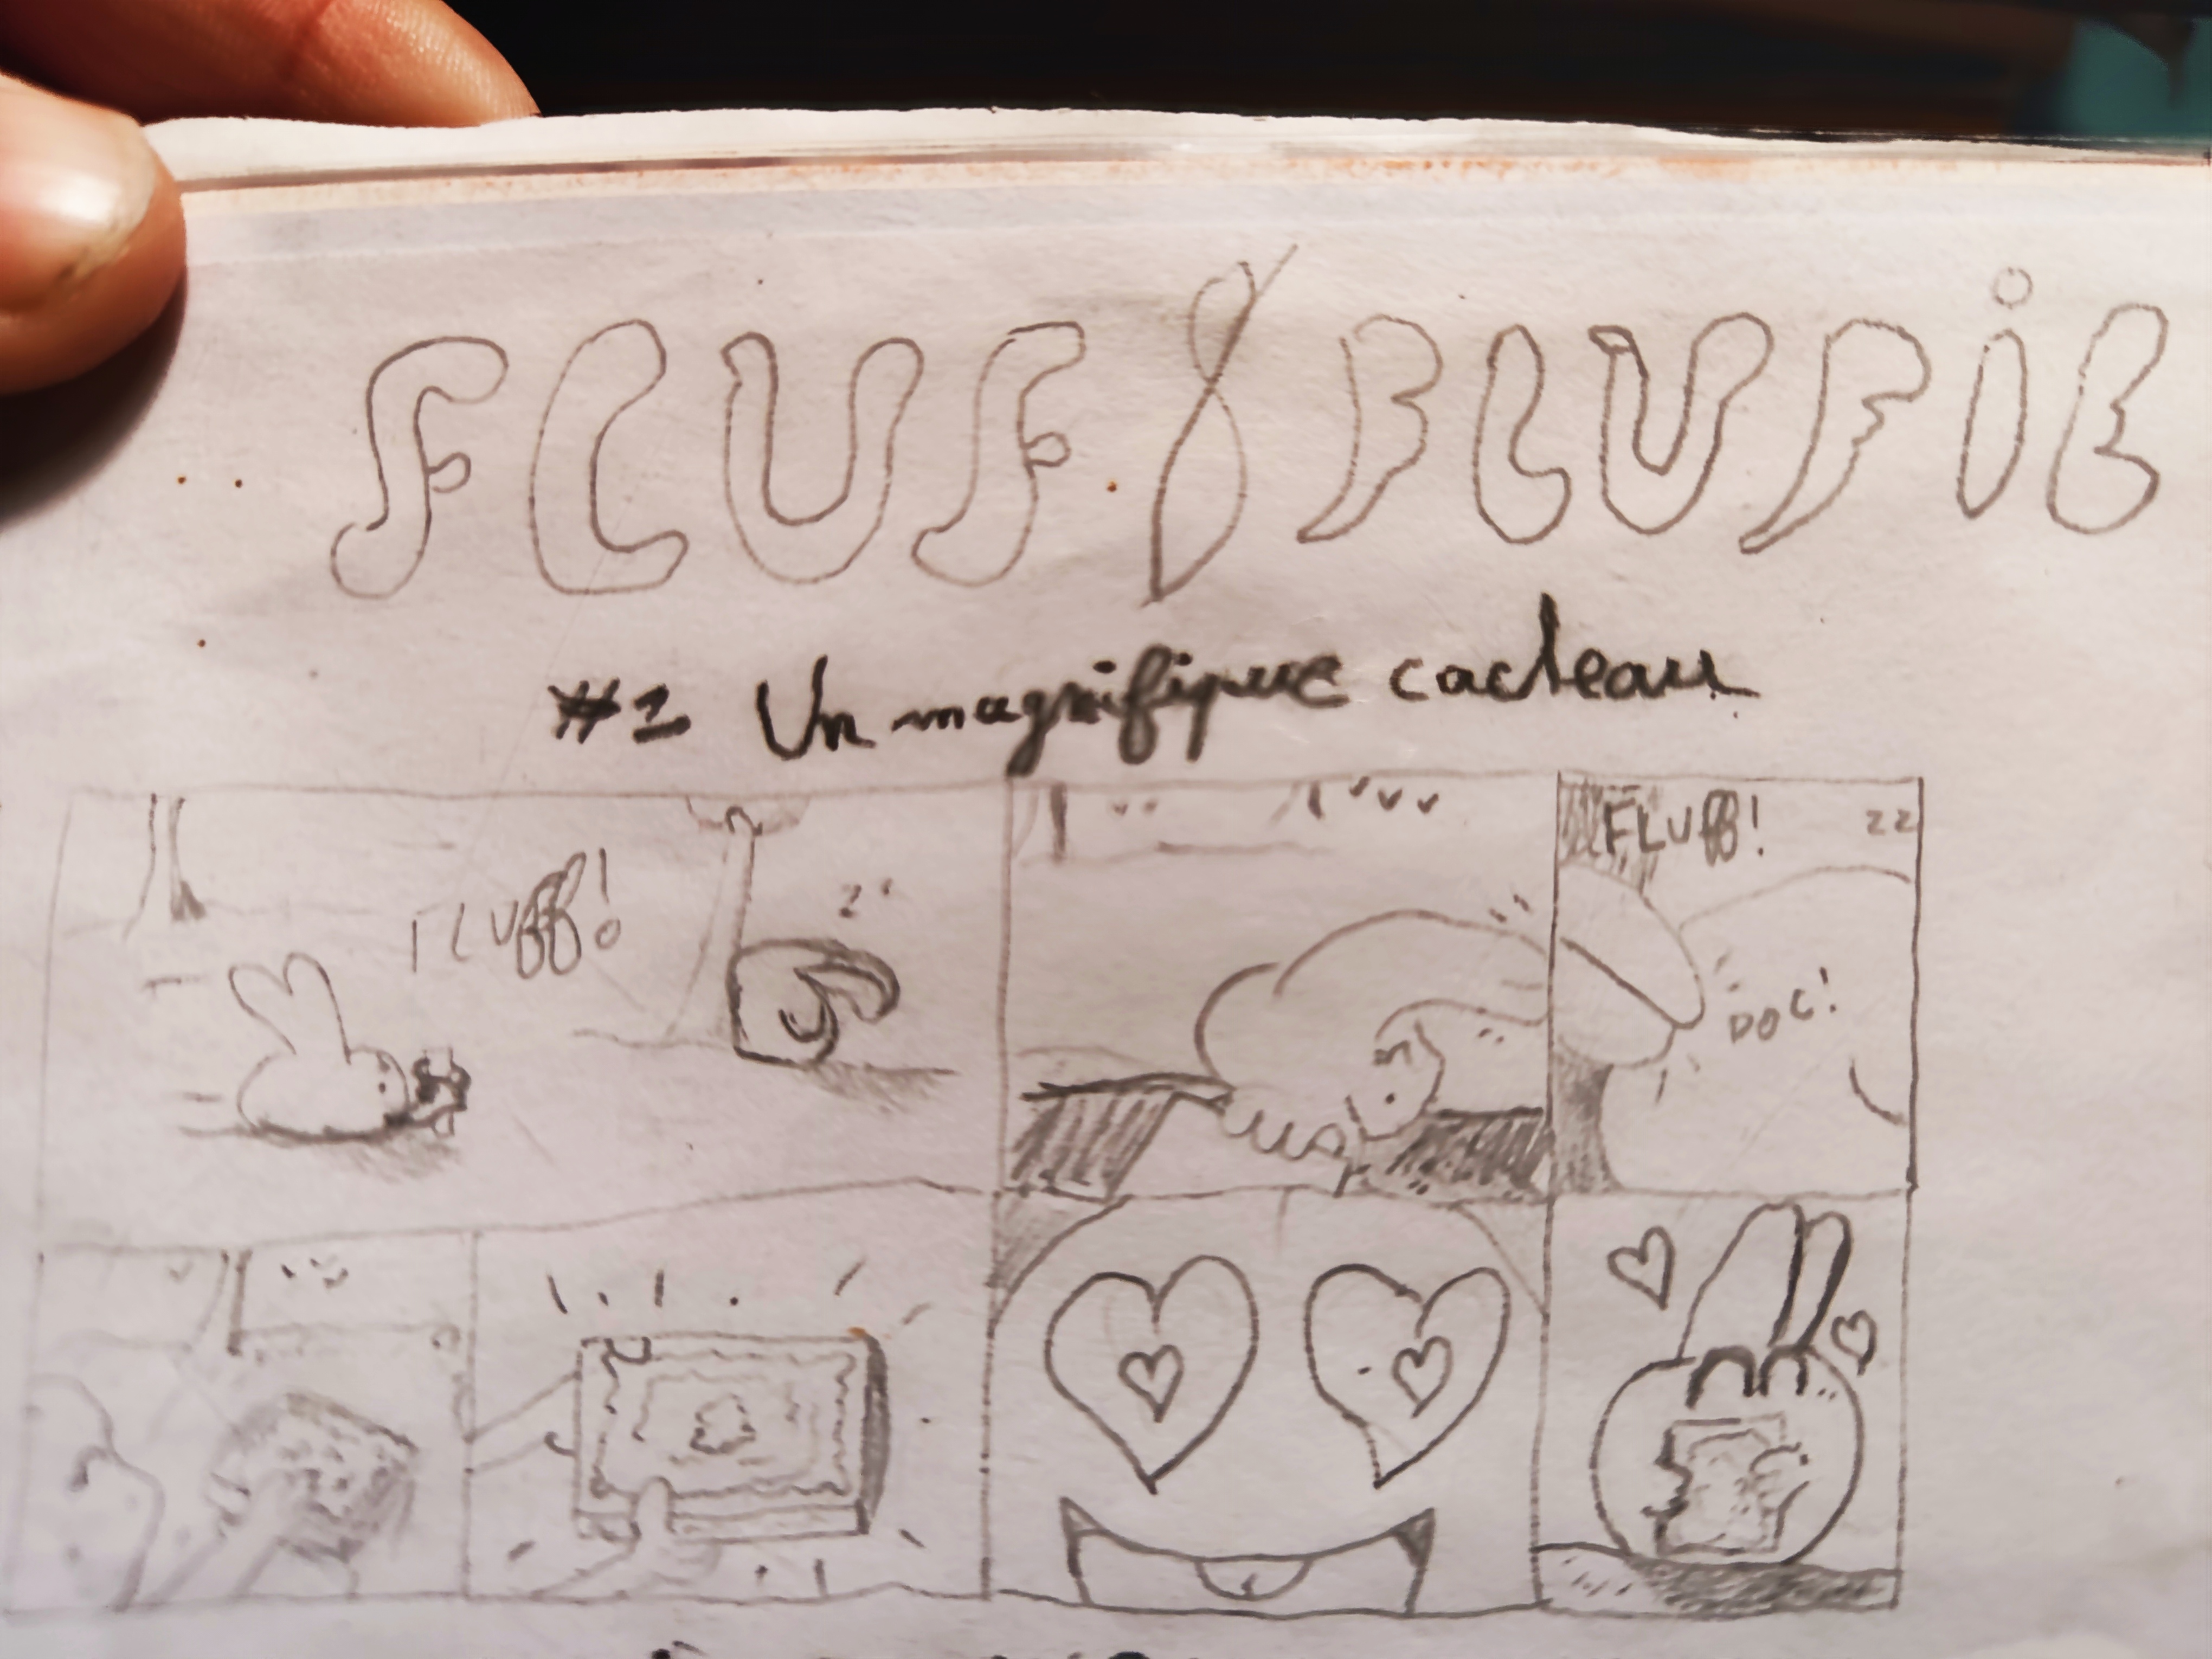 FLUF & FLUFiE
#1 Un magnifique cacteau
FLUFF!
z
FLUFF!
zz
DOC!